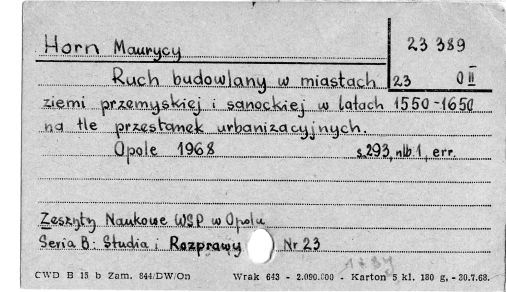 Horn Maurycy 23 389
Ruch budowlany w miastach 23 O II
ziemi przemyskiej i sanockiej w latach 1550-1650
na tle przesłanek urbanizacyjnych.
Opole 1968 s.293, nlb.1, err.
Zeszyty Naukowe WSP w Opolu
Seria B: Studia i Rozprawy Nr 23
CWD B 15 b Zam. 844/DW/On Wrak 643 - 2.090.000 - Karton 5 kl. 180 g, - 30.7.68.